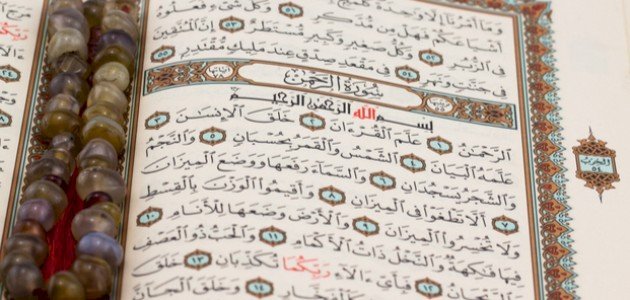 وَمَآ أَمْرُنَآ إِلَّا وَٰحِدَةٌ كَلَمْحٍ
أَشْيَاعَكُمْ فَهَلْ مِن مُّدَّكِرٍ ٥١ وَكُلُّ شَىْءٍ
فِى ٱلزُّبُرِ ٥٢ وَكُلُّ صَغِيرٍ وَكَبِيرٍ مُّسْتَطَرٌ ٥٣ إِنَّ ٱلْمُتَّقِينَ
فِى جَنَّٰتٍ وَنَهَرٍ ٥٤ فِى مَقْعَدِ صِدْقٍ عِندَ مَلِيكٍ مُّقْتَدِرٍۭ ٥٥
سُورَةُ الرَّحْمٰن
بِسْمِ ٱللَّهِ ٱلرَّحْمَٰنِ ٱلرَّحِيمِ
ٱلرَّحْمَٰنُ ١ عَلَّمَ ٱلْقُرْءَانَ ٢ خَلَقَ ٱلْإِنسَٰنَ ٣
عَلَّمَهُ ٱلْبَيَانَ ٤ ٱلشَّمْسُ وَٱلْقَمَرُ بِحُسْبَانٍ ٥ وَٱلنَّجْمُ
وَٱلشَّجَرُ يَسْجُدَانِ ٦ وَٱلسَّمَآءَ رَفَعَهَا وَوَضَعَ ٱلْمِيزَانَ
٧ أَلَّا تَطْغَوْا۟ فِى ٱلْمِيزَانِ ٨ وَأَقِيمُوا۟ ٱلْوَزْنَ بِٱلْقِسْطِ
وَلَا تُخْسِرُوا۟ ٱلْمِيزَانَ ٩ وَٱلْأَرْضَ وَضَعَهَا لِلْأَنَامِ ١٠
فِيهَا فَٰكِهَةٌ وَٱلنَّخْلُ ذَاتُ ٱلْأَكْمَامِ ١١ وَٱلْحَبُّ ذُو ٱلْعَصْفِ
١٢ فَبِأَىِّ ءَالَآءِ رَبِّكُمَا تُكَذِّبَانِ ١٣ خَلَقَ
١٤ وَخَلَقَ ٱلْجَآنَّ
الحزب
٥٤